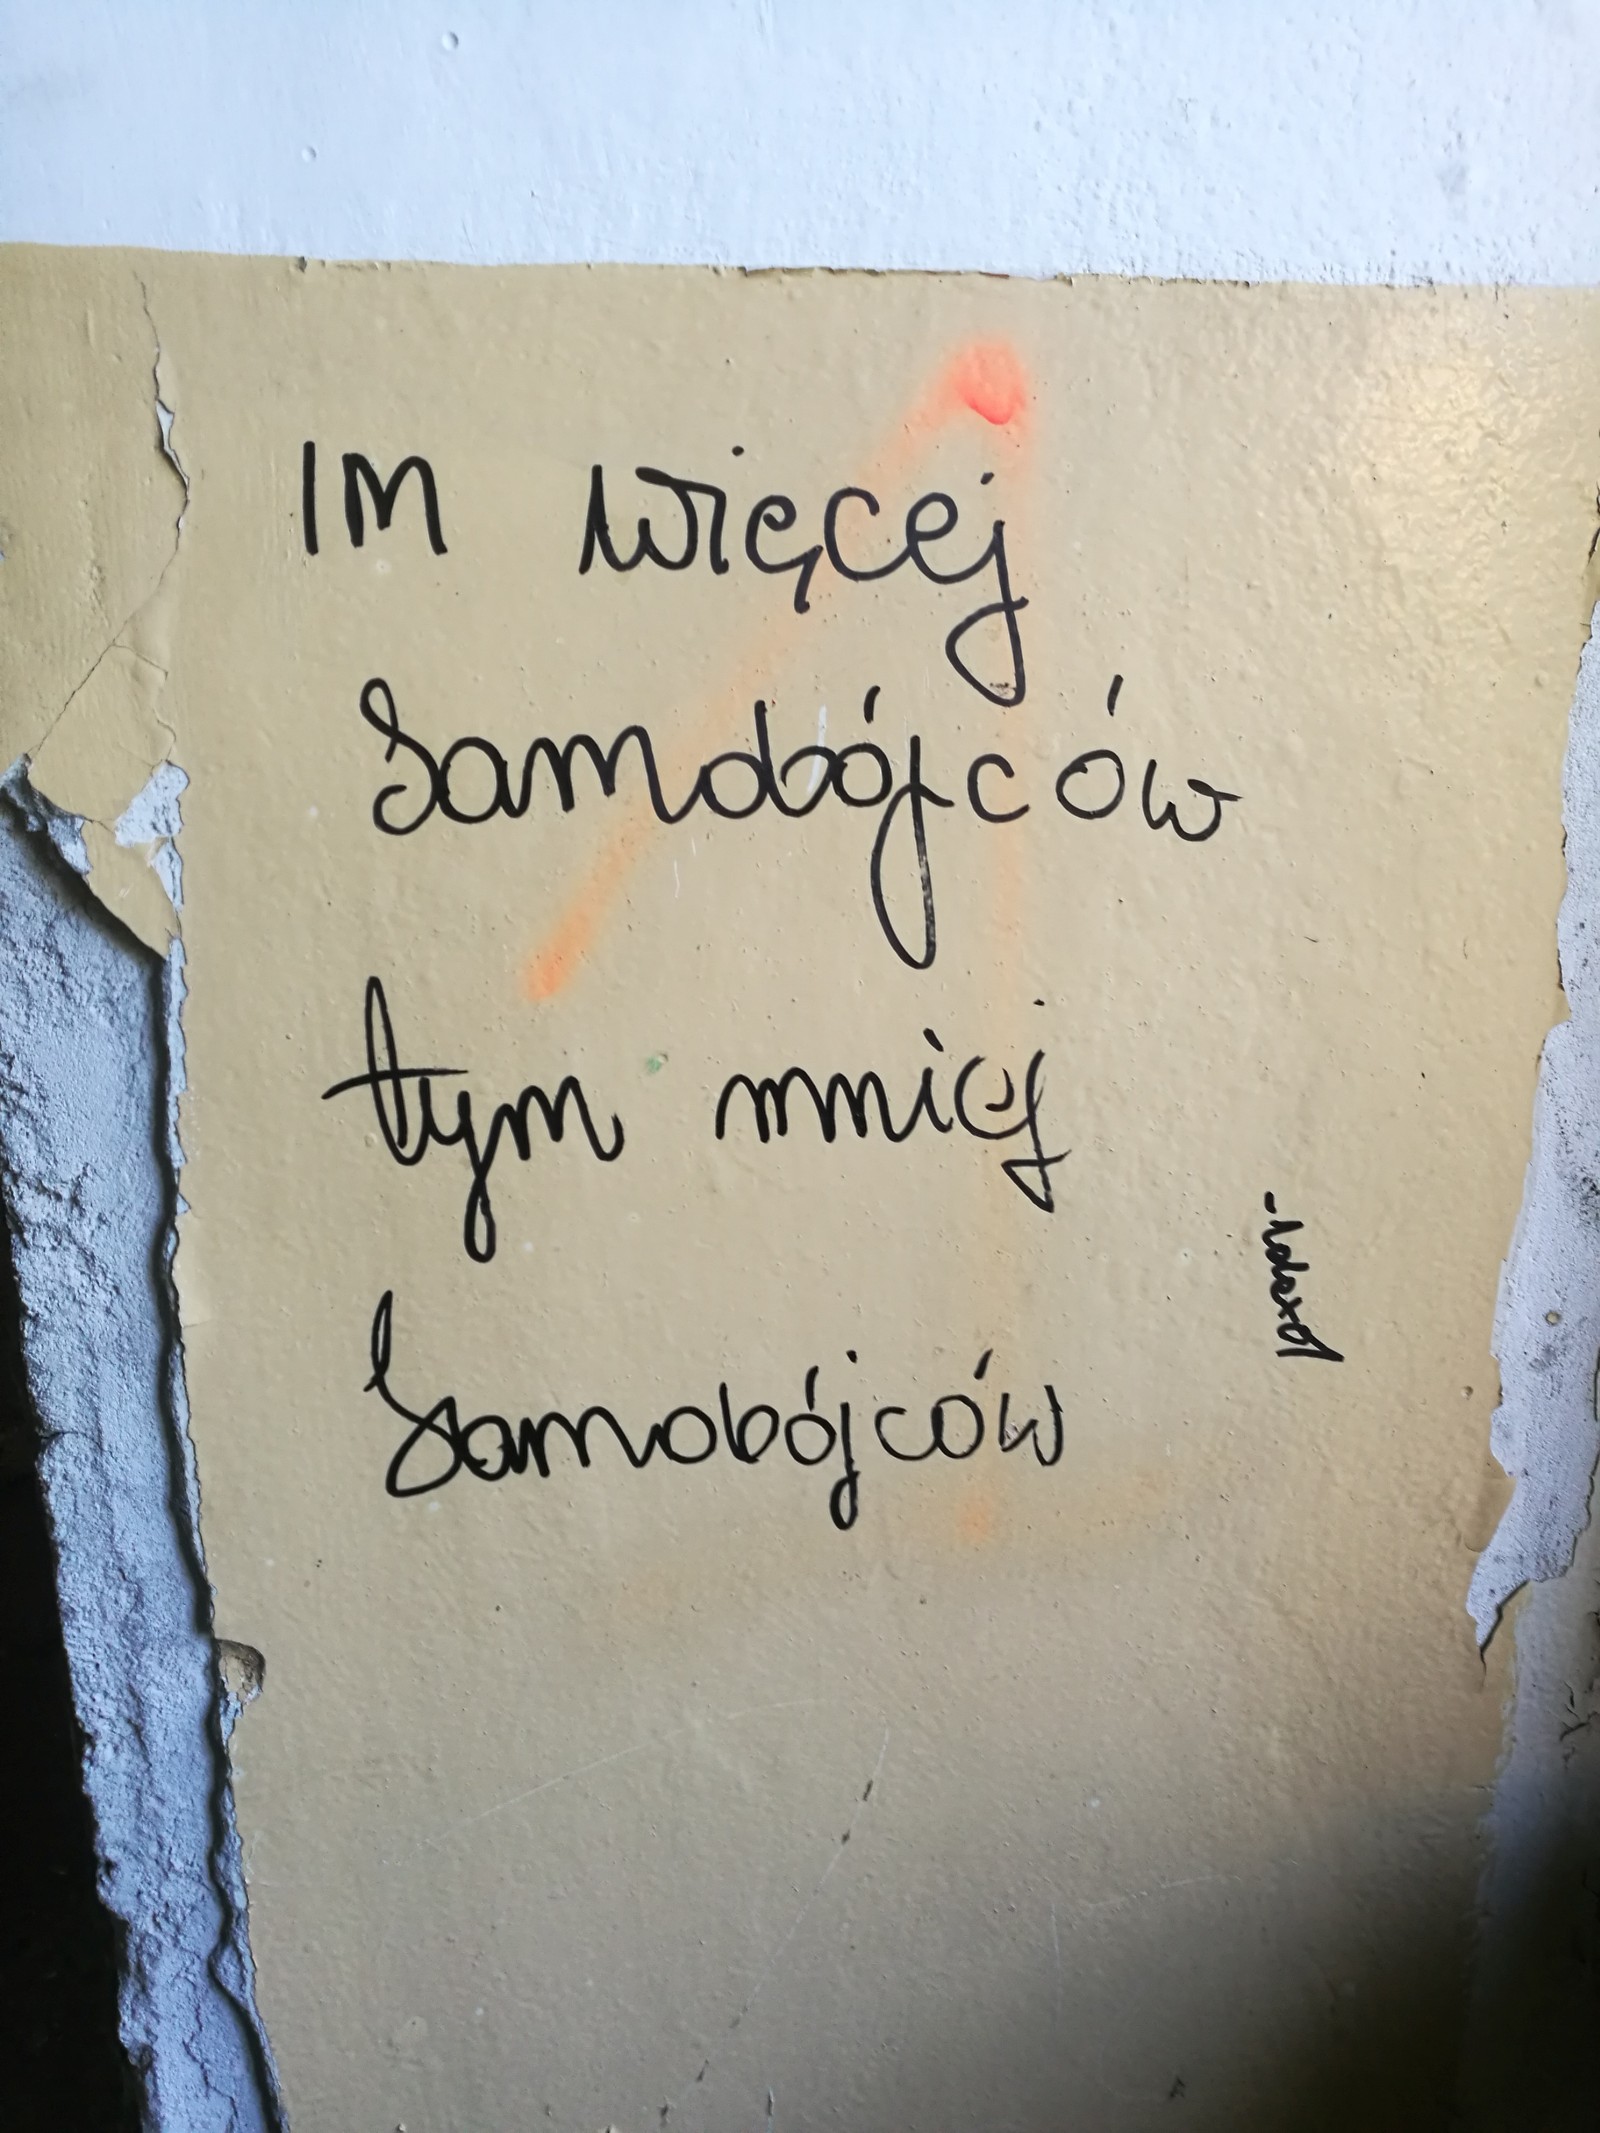 IM więcej
Samobójców
tym mniej
Samobójców